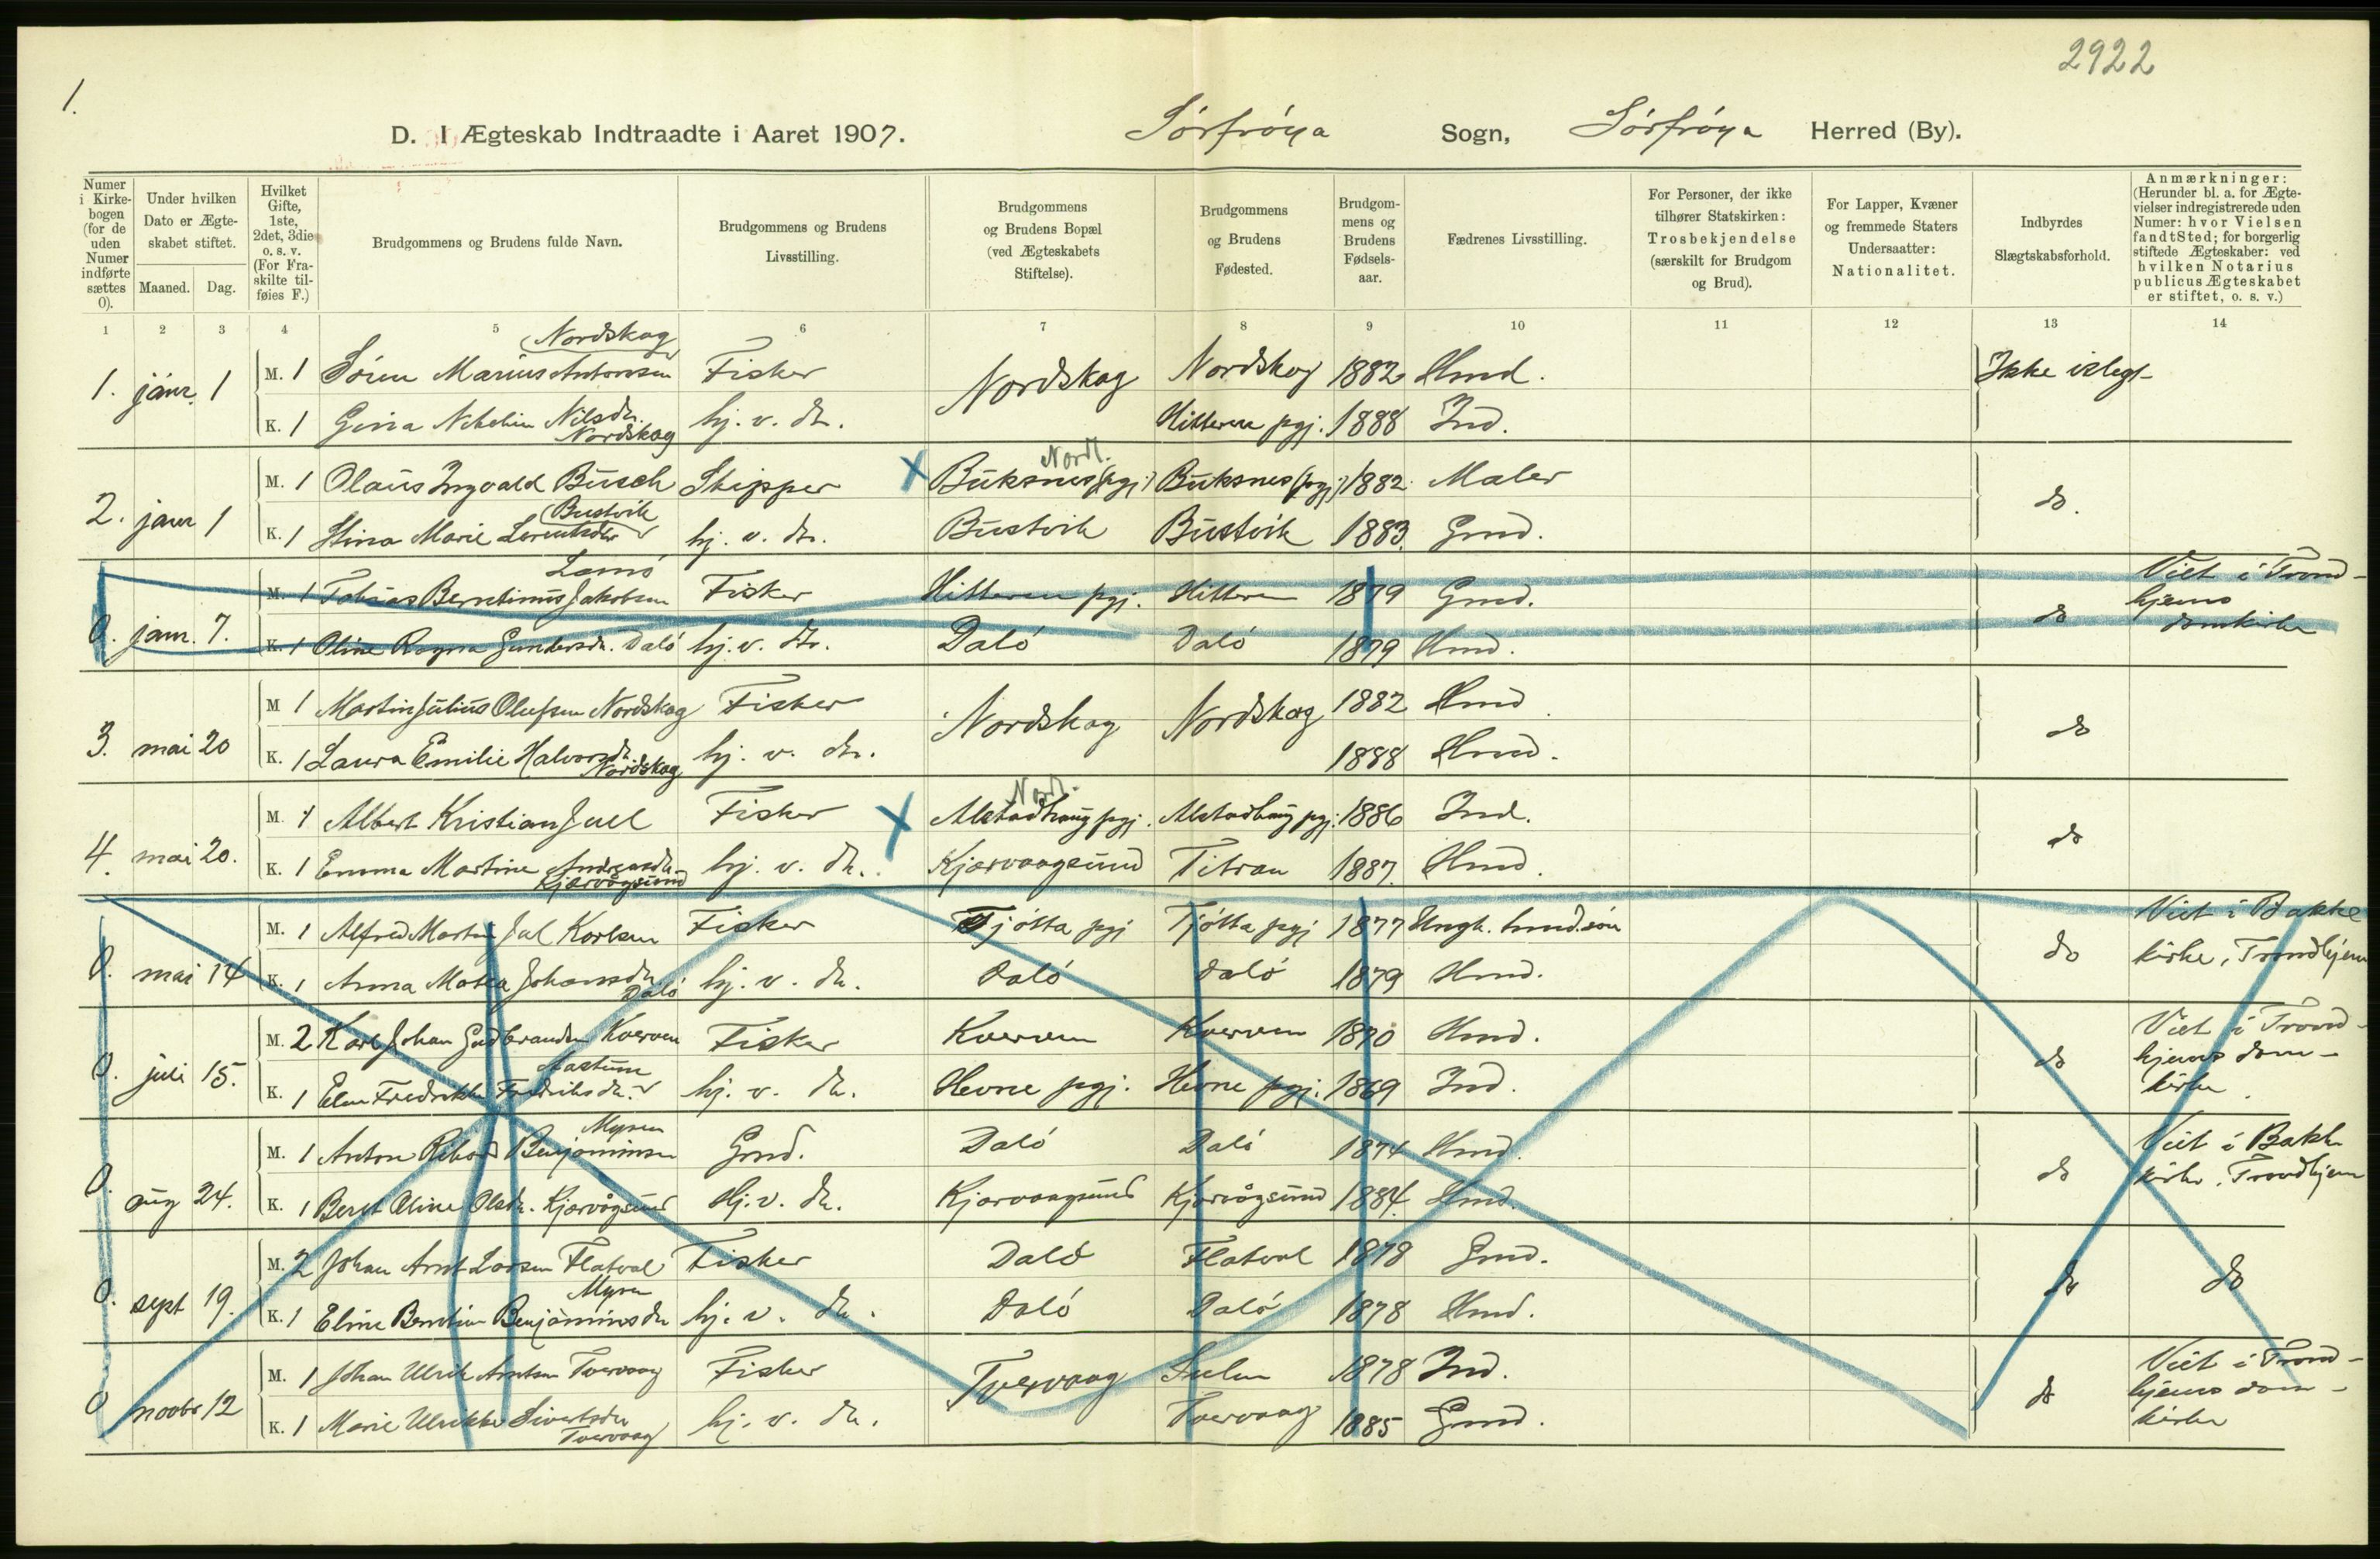 2922
1.
D. I Ægteskab Indtraadte i Aaret 1907. Sörfröya Sogn, Sörfröya Herred (By).
Numer i Kirkebogen (for de uden Numer indførte sættes 0).
Under hvilken Dato er Ægteskabet stiftet.
Maaned. Dag.
Hvilket Gifte, 1ste, 2det, 3die o. s. v. (For Fraskilte tilføies F.)
Brudgommens og Brudens fulde Navn.
Brudgommens og Brudens Livsstilling.
Brudgommens og Brudens Bopæl (ved Ægteskabets Stiftelse).
Brudgommens og Brudens Fødested.
Brudgommens og Brudens Fødselsaar.
Fædrenes Livsstilling.
For Personer, der ikke tilhører Statskirken: Trosbekjendelse (særskilt for Brudgom og Brud).
For Lapper, Kvæner og fremmede Staters Undersaatter: Nationalitet.
Indbyrdes Slægtskabsforhold.
Anmærkninger: (Herunder bl. a. for Ægtevielser indregistrerede uden Numer: hvor Vielsen fandt Sted; for borgerlig stiftede Ægteskaber: ved hvilken Notarius publicus Ægteskabet er stiftet, o. s. v.)
1 2 3 4 5 6 7 8 9 10 11 12 13 14
Nordskag
1. janr. 1 M. 1 Sören Marius Antonsen Fisker Nordskag Nordskag 1882 Hmd. Ikke islegt
K. 1 Gina Nilsdr. Nordskag hj. v. dr. Hitteren pgj. 1888 Ind.
Nordl.
2. janr 1 M. 1 Olaus Ingvald Busch Skipper X Buksnes (pgj.) Buksnes (pgj.) 1882 Maler do.
Bustvik
K. 1 Stina Marie Lorentsdtr hj. v. dr. Bustvik Bustvik 1883. Gmd.
Lamö
0. janr. 7. M. 1 Tobias Berntinus Jakobsen Fisker Hitteren pgj. Hitteren 1879 Gmd. do Viet i Trondhjems domkirke
K. 1 Oline Ragna Gundersdr. Dalö hj. v. dr. Dalö Dalö 1879 Hmd.
3. mai 20 M 1 Martin Julius Olufsen Nordskag Fisker Nordskag Nordskag 1882 Hmd do
K. 1 Laura Emilie Halvorsdr. Nordskag hj. v. dr. 1888 Hmd.
Nord.
4. mai 20. M. 1 Albert Kristian Juul Fisker X Alstadhaug pgj. Alstadhaug pgj. 1886 Ind. do
K. 1 Emma Martine Andreasdr. Kjærvågsund hj. v. dr. Kjærvaagsund Titran 1887. Hmd.
0. mai 14 M. 1 Alfred Martin Jul Karlsen Fisker Tjötta pgj Tjötta pgj 1877 Ungk. hmd.sön do Viet i Bakke kirke, Trondhjem
K. 1 Anna Matea Johansdr. Dalö hj. v. dr. Dalö Dalö 1879 Hmd.
0. juli 15. M. 2 Karl Johan Gudbrandsen Kverven Fisker Kverven Kverven 1870 Hmd. do Viet i Trondhjems domkirke
K. 1 Elen Fredrikke Fredriksdr. hj. v. dr. Hevne pgj. Hevne pgj. 1869 Ind.
Myren
0. aug 24. M. 1 Anton Rikard Benjaminsen Gmd. Dalö Dalö 1874 Hmd. do Viet i Bakke kirke, Trondhjem
K. 1 Beret Oline Olsdr. Kjærvågsund Hj. v. dr. Kjærvaagsund Kjærvågsund 1884. Hmd.
0. sept 19. M. 2 Johan Arnt Larsen Flatval Fisker Dalö Flatval 1878 Gmd. do do
Myren
K. 1 Eline Berntine Benjaminsdr. hj. v. dr. Dalö Dalö 1878 Hmd.
0 novbr 12 M. 1 Johan Ulrik Arntsen Tvervaag Fisker Tvervaag Sulen 1878 Ind. do Viet i Trondhjems domkirke
K. 1 Marie Ulrikke Sivertsdtr Tvervaag hj. v. dr. Tvervaag 1885 Gmd.